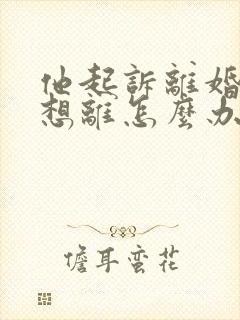 他起訴離婚
想離怎麼办
儋耳蛮花